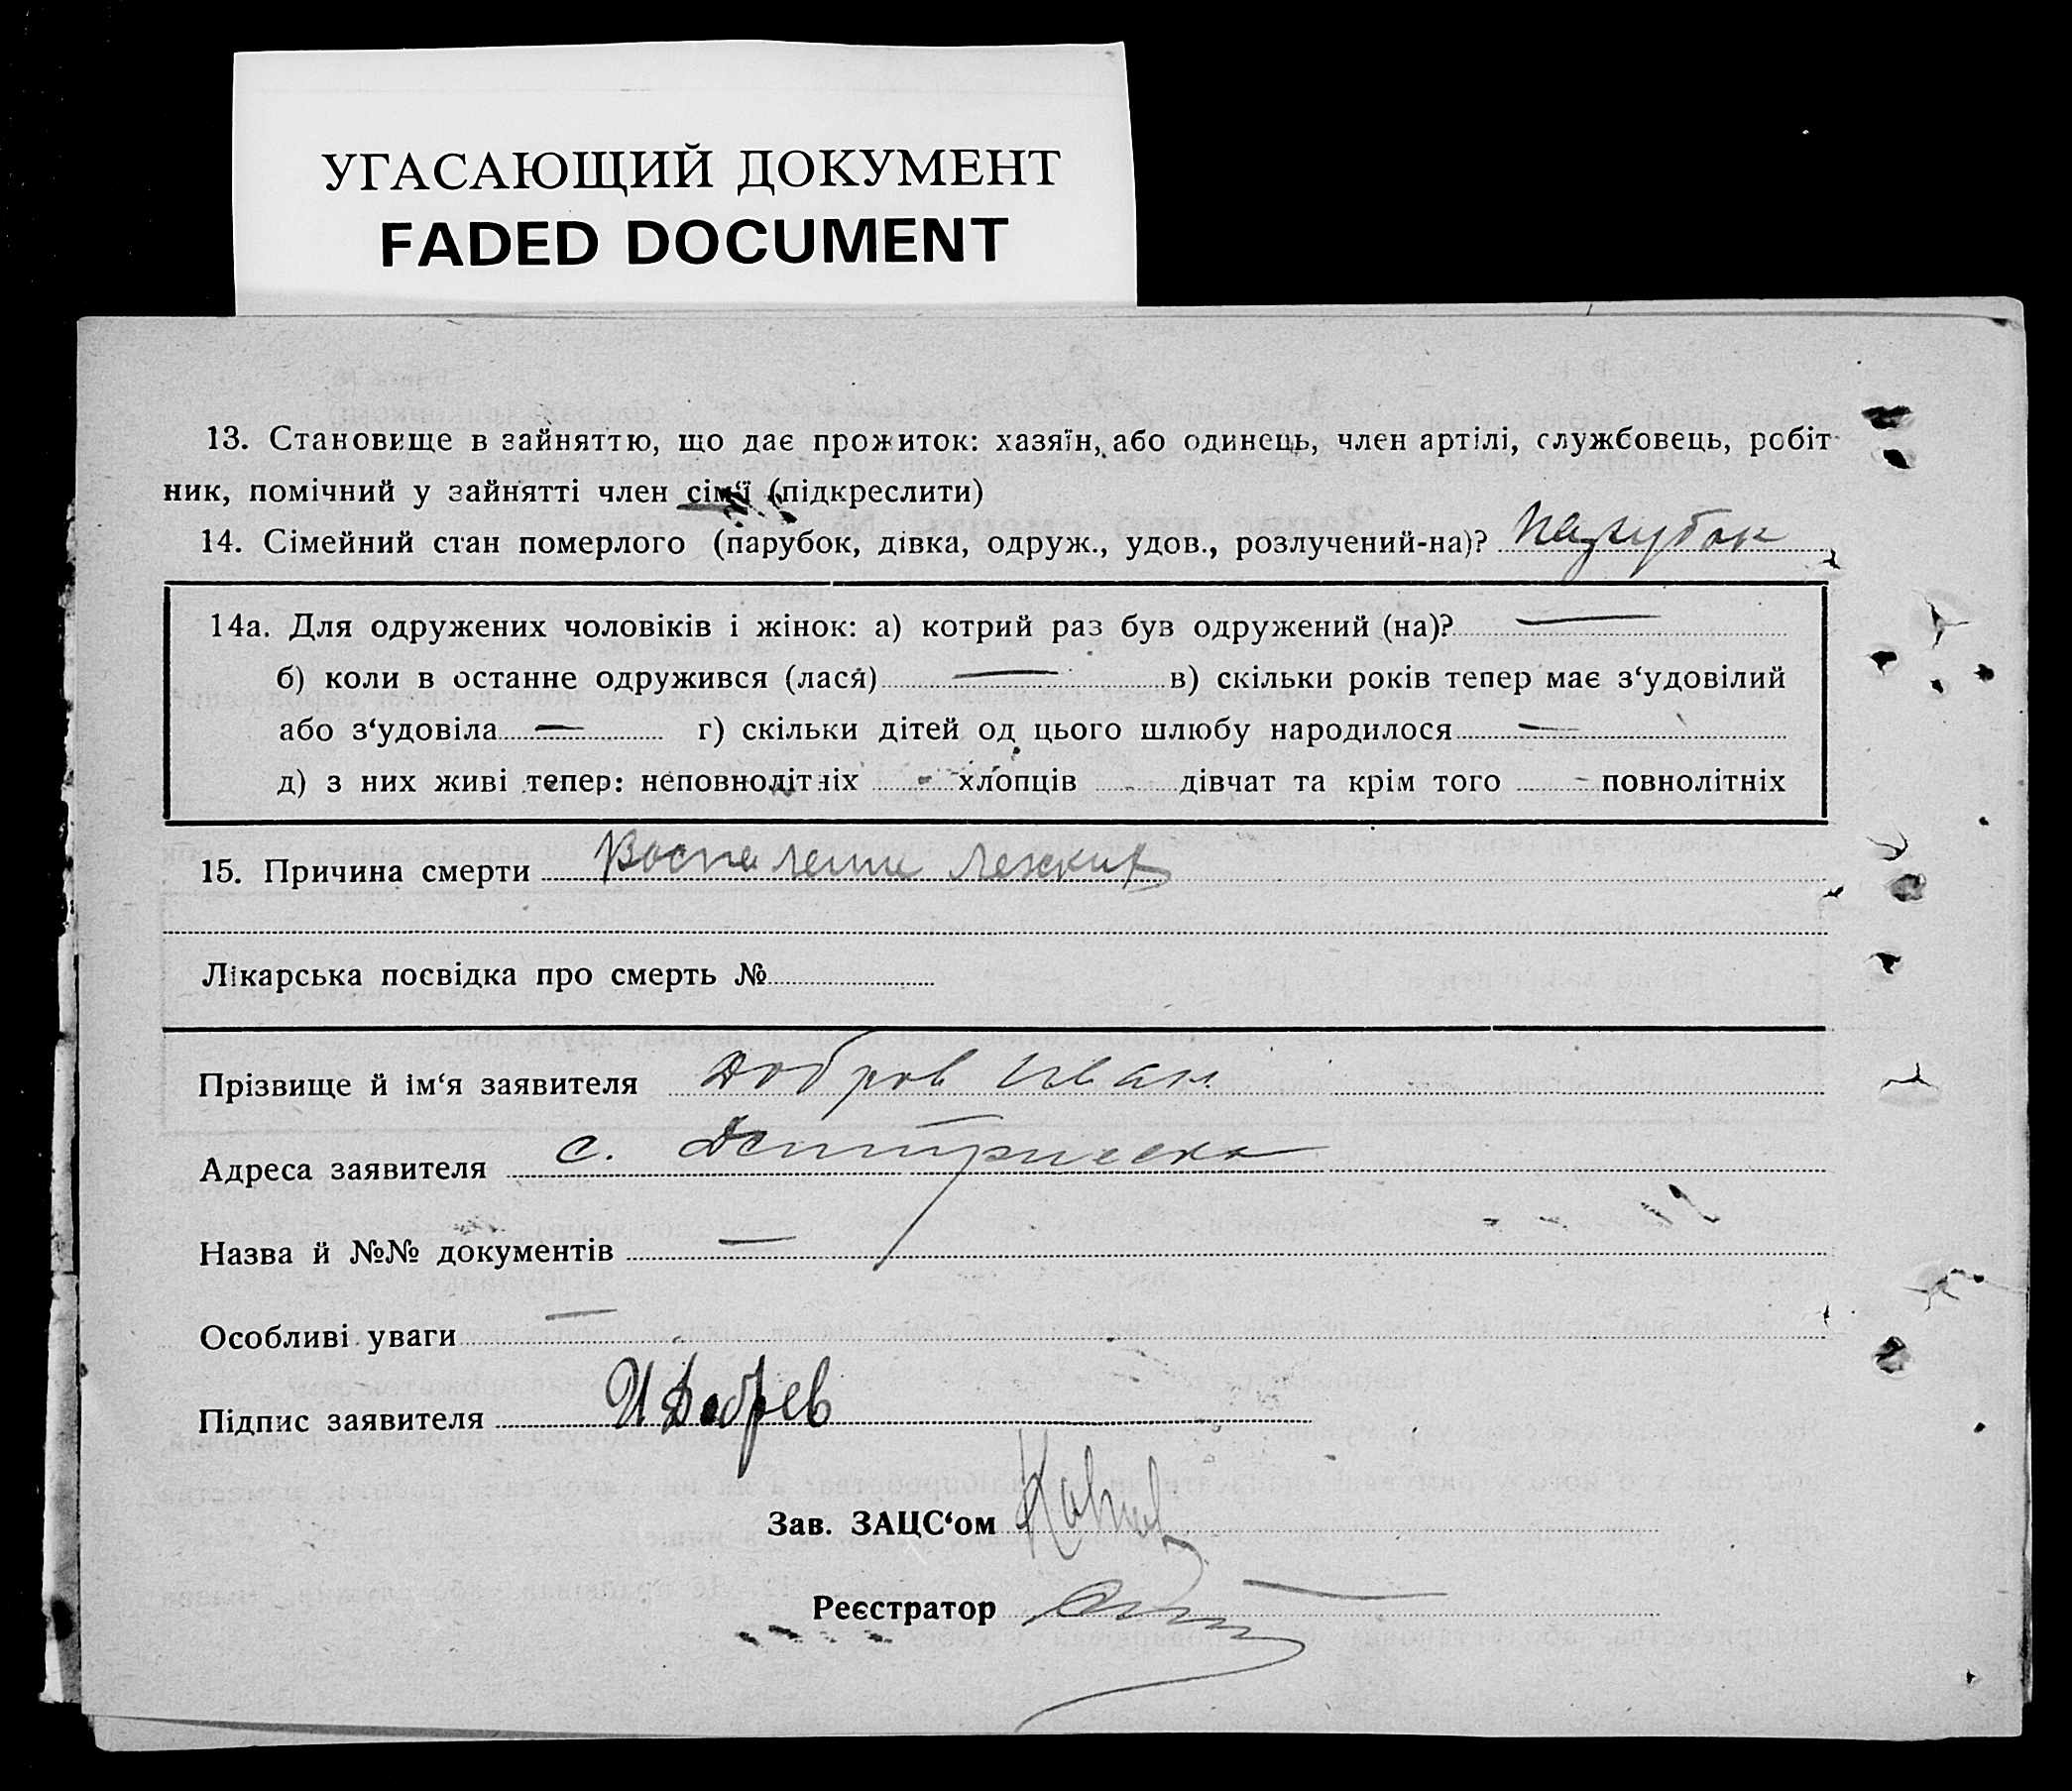 УГАСАЮЩИЙ ДОКУМЕНТ
FADED DOCUMENT
13. Становище в зайняттю, що дає прожиток: хазяїн, або одинець, член артілі, службовець, робіт-
ник, помічний у зайнятті член сім‘ї (підкреслити)
14. Сімейний стан померлого (парубок, дівка, одруж., удов., розлучений-на)? парубок
14а. Для одружених чоловіків і жінок: а) котрий раз був одружений (на)? —
б) коли в останне одружився (лася) — в) скільки років тепер має з‘удовілий
або з‘удовіла — г) скільки дітей од цього шлюбу народилося —
д) з них живі тепер: неповнолітніх - хлопців - дівчат та крім того - повнолітніх
15. Причина смерти Воспаление легких
Лікарська посвідка про смерть №
Прізвище й ім‘я заявителя Добров Иван
Адреса заявителя с.
Назва й №№ документів —
Особливі уваги —
Підпис заявителя И Добрев
Зав. ЗАЦС‘ом
Реєстратор